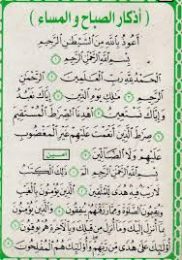 ( أذكار الصباح و المساء )
أَعُوذُ بِاللَّهِ مِنَ الشَّيْطَٰنِ الرَّجِيمِ
بِسْمِ اللَّهِ الرَّحْمَٰنِ الرَّحِيمِ
الْحَمْدُ لِلَّهِ رَبِّ الْعَٰلَمِينَ الرَّحْمَٰنِ
الرَّحِيمِ مَٰلِكِ يَوْمِ الدِّينِ إِيَّاكَ نَعْبُدُ
وَإِيَّاكَ نَسْتَعِينُ اهْدِنَا الصِّرَٰطَ الْمُسْتَقِيمَ
صِرَٰطَ الَّذِينَ أَنْعَمْتَ عَلَيْهِمْ غَيْرِ الْمَغْضُوبِ
عَلَيْهِمْ وَلَا الضَّالِّينَ آمين
بِسْمِ اللَّهِ الرَّحْمَٰنِ الرَّحِيمِ ذَٰلِكَ الْكِتَٰبُ
لَا رَيْبَ فِيهِ هُدًى لِّلْمُتَّقِينَ الَّذِينَ يُؤْمِنُونَ بِالْغَيْبِ
وَيُقِيمُونَ الصَّلَوٰةَ وَمِمَّا رَزَقْنَٰهُمْ يُنفِقُونَ وَالَّذِينَ يُؤْمِنُونَ
بِمَا أُنزِلَ إِلَيْكَ وَمَا أُنزِلَ مِن قَبْلِكَ وَبِالْآخِرَةِ هُمْ يُوقِنُونَ
أُولَٰئِكَ عَلَىٰ هُدًى مِّن رَّبِّهِمْ وَأُولَٰئِكَ هُمُ الْمُفْلِحُونَ